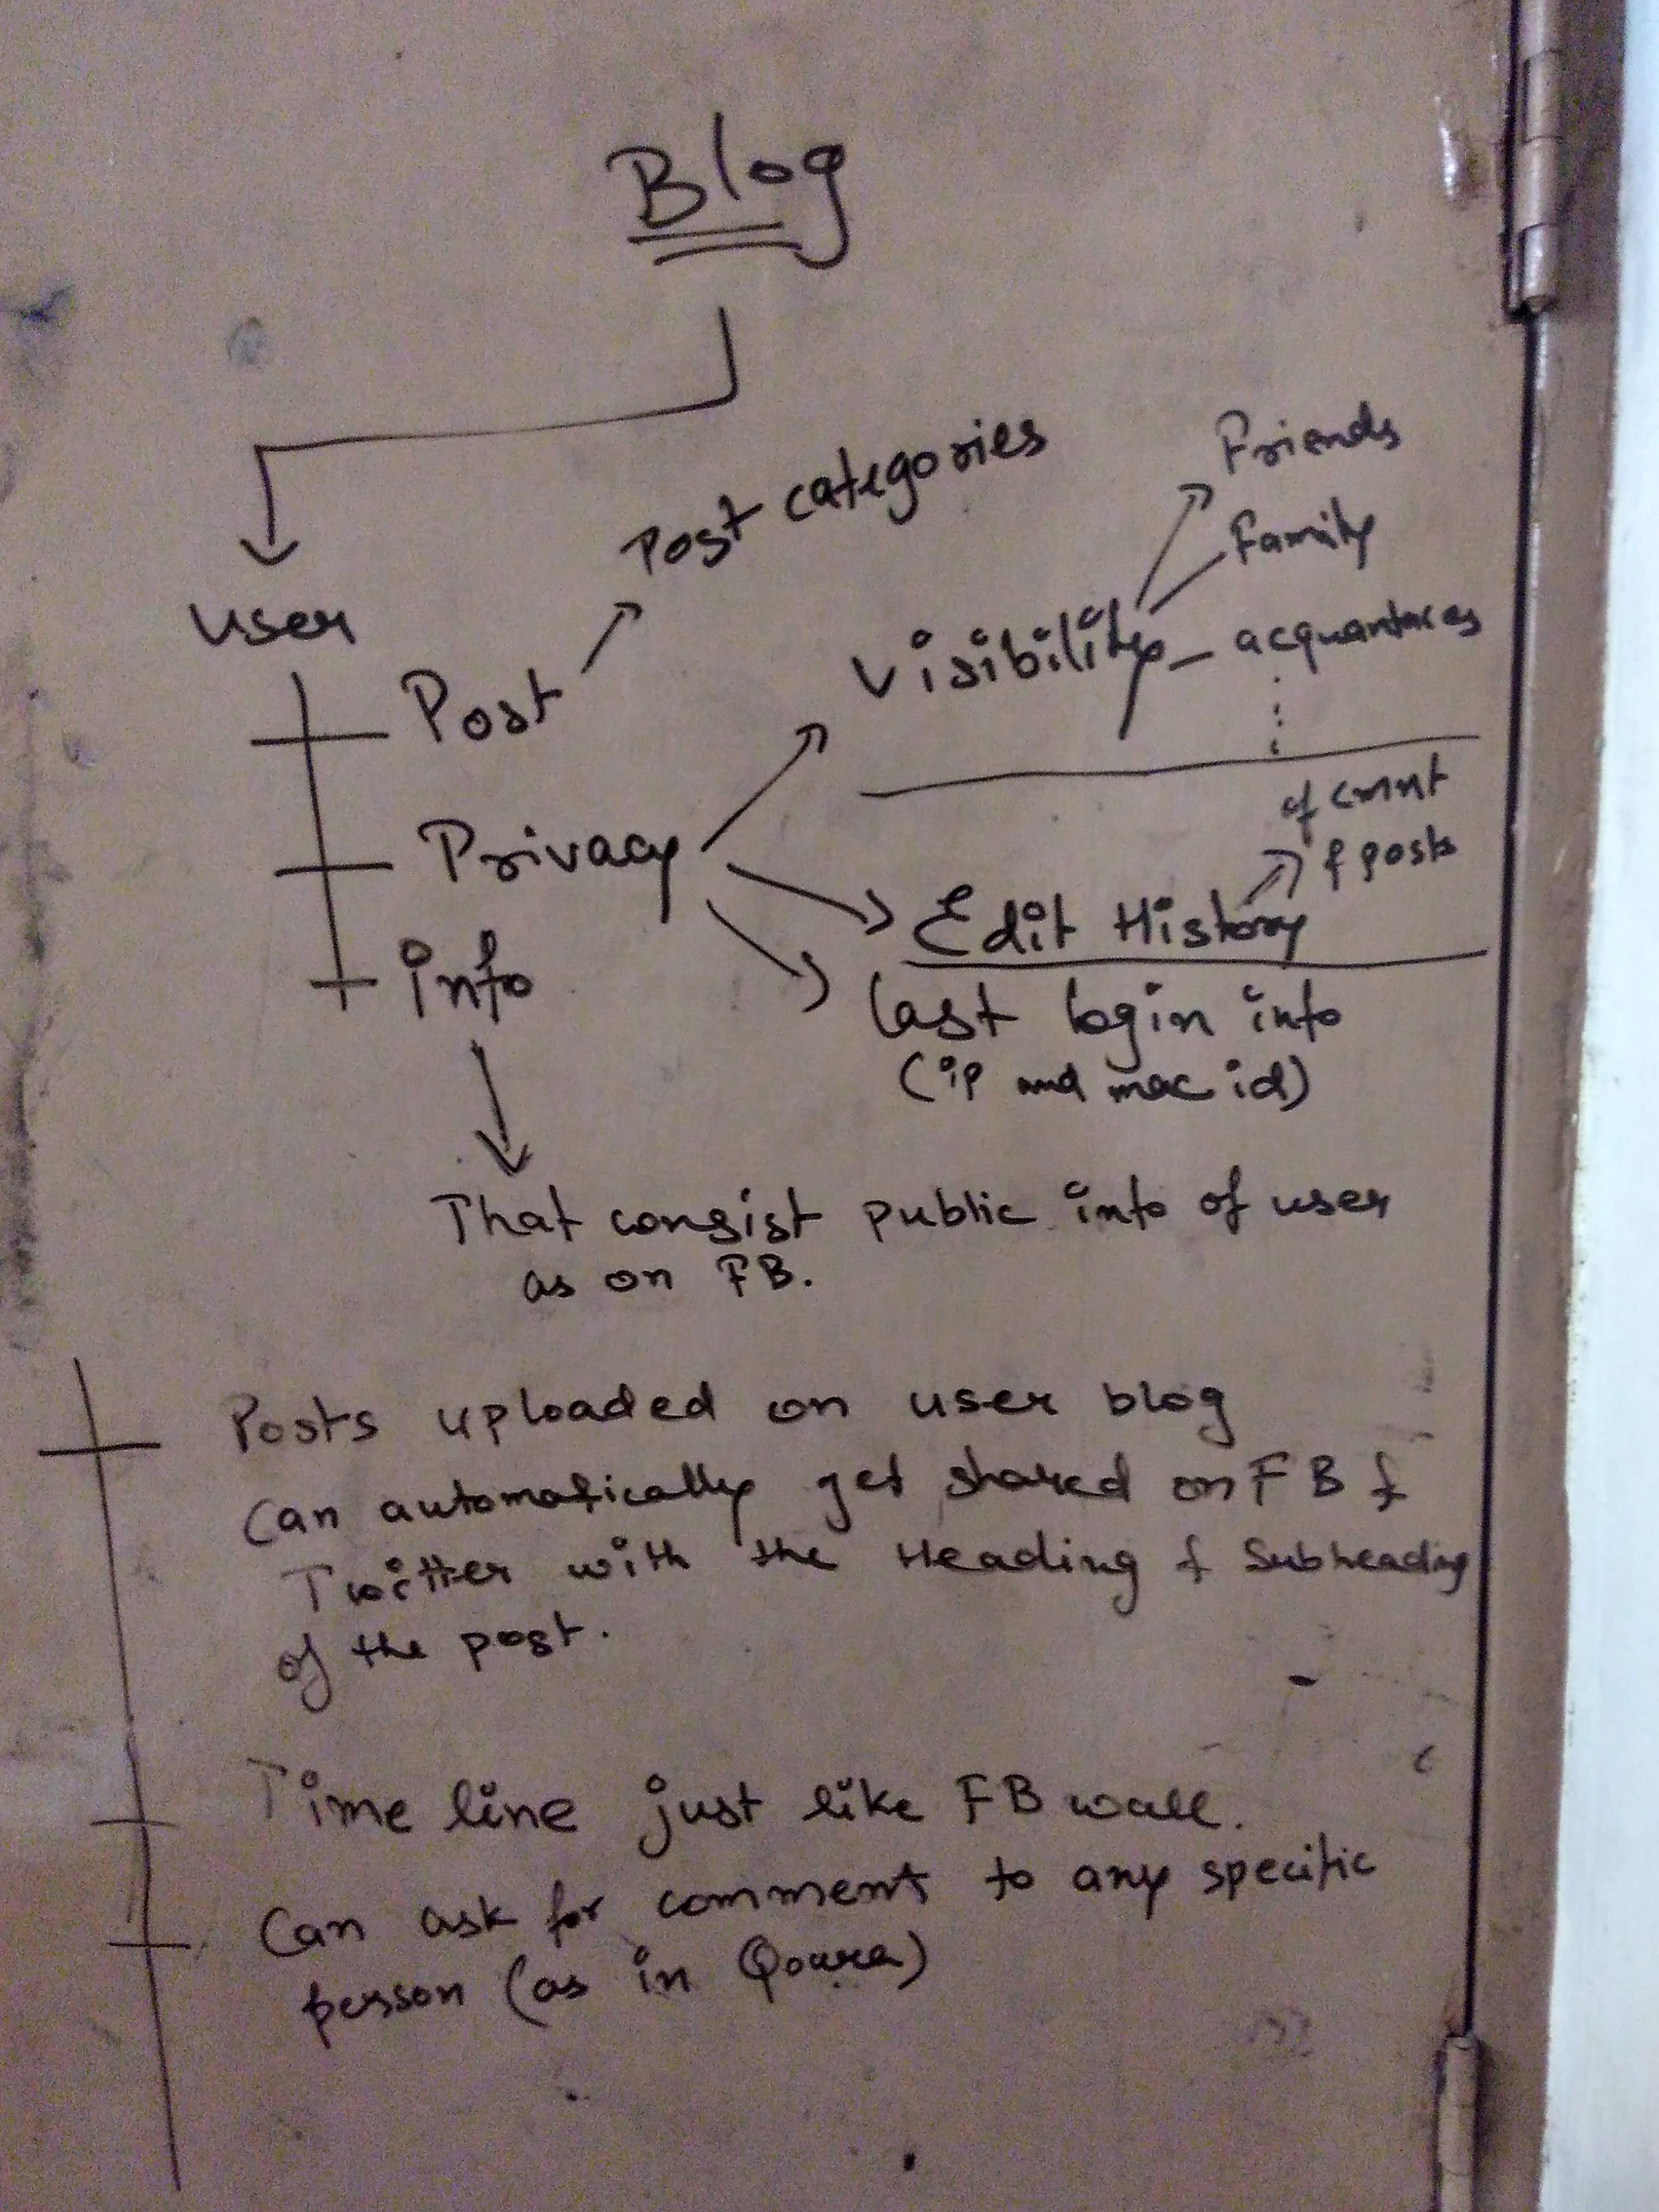 Blog
Post categories
Friends
Family
user
Visibility
acquantaces
Post
of cmnt
& posts
Privacy
Edit History
info
last login info
(ip and mac id)
That consist public info of user
as on FB.
Posts uploaded on user blog
can automatically get shared on FB &
Twitter with the Heading & Subheading
of the post.
Time line just like FB wall.
Can ask for comment to any specific
person (as in Qoura)